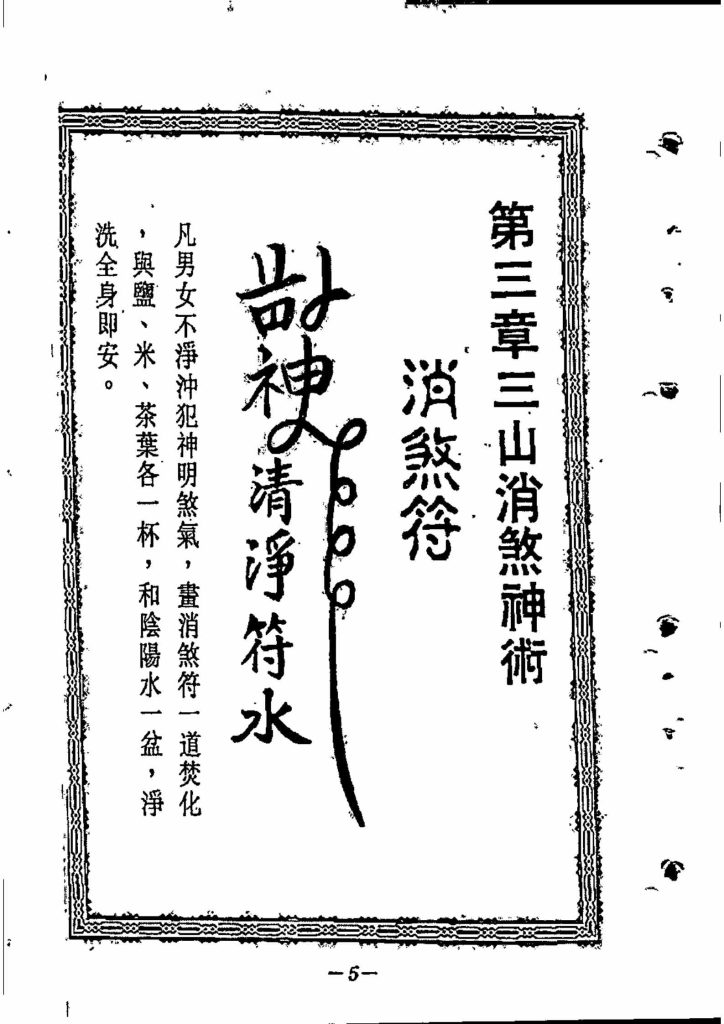 第三章三山消煞神術
消煞符
清淨符水
凡男女不淨沖犯神明煞氣，畫消煞符一道焚化
，與鹽、米、茶葉各一杯，和陰陽水一盆，淨
洗全身即安。
—5—